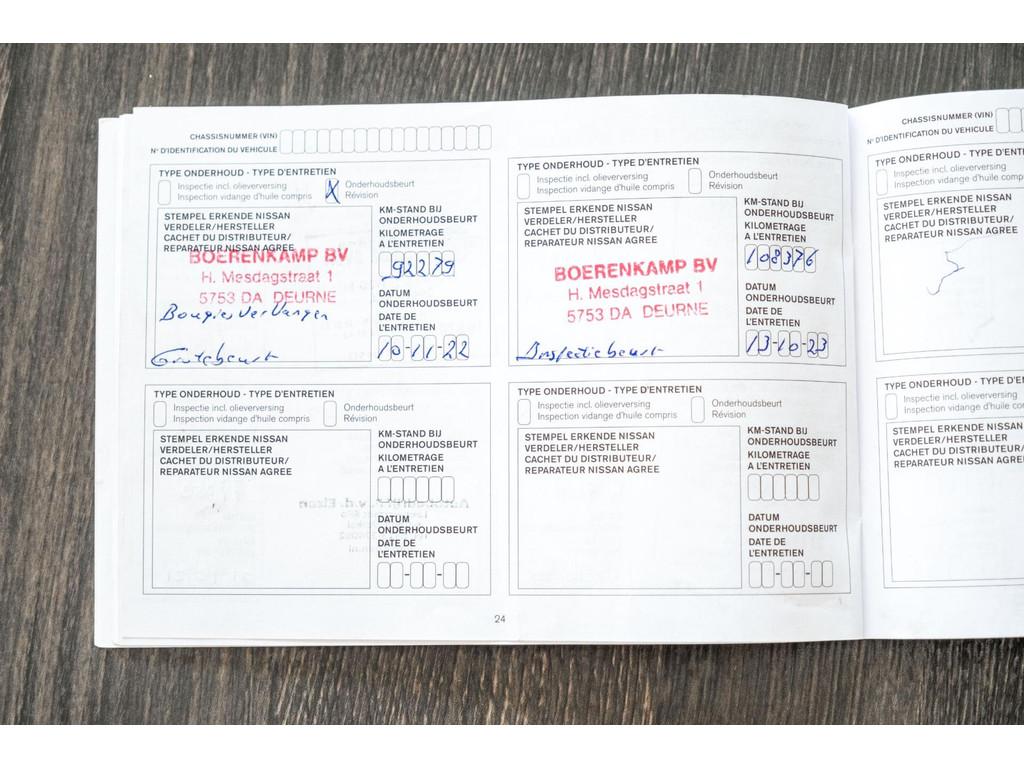 CHASSISNUMMER (VIN)
N° D'IDENTIFICATION DU VEHICULE
TYPE ONDERHOUD - TYPE D'ENTRETIEN
Inspectie incl. olieverversing
Inspection vidange d'huile compris
X
Onderhoudsbeurt
Révision
STEMPEL ERKENDE NISSAN
VERDELER/HERSTELLER
CACHET DU DISTRIBUTEUR/
REPARATEUR NISSAN AGREE
BOERENKAMP BV
H. Mesdagstraat 1
5753 DA DEURNE
Bougies Vervangen
Grotebeurt
KM-STAND BIJ
ONDERHOUDSBEURT
KILOMETRAGE
A L'ENTRETIEN
92279
DATUM
ONDERHOUDSBEURT
DATE DE
L'ENTRETIEN
10-11-22
TYPE ONDERHOUD - TYPE D'ENTRETIEN
Inspectie incl. olieverversing
Inspection vidange d'huile compris
Onderhoudsbeurt
Révision
STEMPEL ERKENDE NISSAN
VERDELER/HERSTELLER
CACHET DU DISTRIBUTEUR/
REPARATEUR NISSAN AGREE
BOERENKAMP BV
H. Mesdagstraat 1
5753 DA DEURNE
Inspectiebeurt
KM-STAND BIJ
ONDERHOUDSBEURT
KILOMETRAGE
A L'ENTRETIEN
108376
DATUM
ONDERHOUDSBEURT
DATE DE
L'ENTRETIEN
13-10-23
TYPE ONDERHOUD - TYPE D'ENTRETIEN
Inspectie incl. olieverversing
Inspection vidange d'huile compris
Onderhoudsbeurt
Révision
STEMPEL ERKENDE NISSAN
VERDELER/HERSTELLER
CACHET DU DISTRIBUTEUR/
REPARATEUR NISSAN AGREE
KM-STAND BIJ
ONDERHOUDSBEURT
KILOMETRAGE
A L'ENTRETIEN
DATUM
ONDERHOUDSBEURT
DATE DE
L'ENTRETIEN
TYPE ONDERHOUD - TYPE D'ENTRETIEN
Inspectie incl. olieverversing
Inspection vidange d'huile compris
Onderhoudsbeurt
Révision
STEMPEL ERKENDE NISSAN
VERDELER/HERSTELLER
CACHET DU DISTRIBUTEUR/
REPARATEUR NISSAN AGREE
KM-STAND BIJ
ONDERHOUDSBEURT
KILOMETRAGE
A L'ENTRETIEN
DATUM
ONDERHOUDSBEURT
DATE DE
L'ENTRETIEN
24
CHASSISNUMMER (VIN)
N° D'IDENTIFICATION DU VEHICULE
TYPE ONDERHOUD - TYPE D'ENTRE
Inspectie incl. olieverversing
Inspection vidange d'huile com
STEMPEL ERKENDE NISSAN
VERDELER/HERSTELLER
CACHET DU DISTRIBUTEUR/
REPARATEUR NISSAN AGREE
TYPE ONDERHOUD - TYPE D'E
Inspectie incl. olieverversing
Inspection vidange d'huile co
STEMPEL ERKENDE NISSAN
VERDELER/HERSTELLER
CACHET DU DISTRIBUTEUR/
REPARATEUR NISSAN AGREE